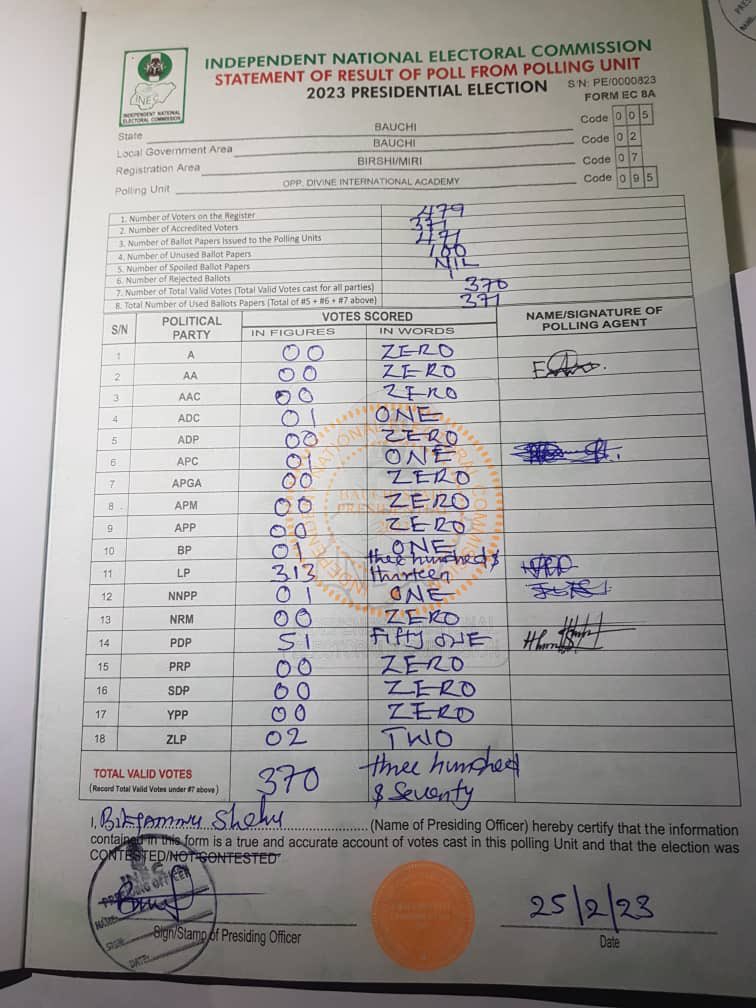 INDEPENDENT NATIONAL ELECTORAL COMMISSION
STATEMENT OF RESULT OF POLL FROM POLLING UNIT
2023 PRESIDENTIAL ELECTION
S/N: PE/0000823
FORM EC 8A
INEC
INDEPENDENT NATIONAL
ELECTORAL COMMISSION
State BAUCHI Code 0 0 5
Local Government Area BAUCHI Code 0 2
Registration Area BIRSHI/MIRI Code 0 7
Polling Unit OPP. DIVINE INTERNATIONAL ACADEMY Code 0 9 5
1. Number of Voters on the Register 479
2. Number of Accredited Voters 371
3. Number of Ballot Papers Issued to the Polling Units
4. Number of Unused Ballot Papers 100
5. Number of Spoiled Ballot Papers NIL
6. Number of Rejected Ballots
7. Number of Total Valid Votes (Total Valid Votes cast for all parties) 370
8. Total Number of Used Ballots Papers (Total of #5 + #6 + #7 above) 371
S/N POLITICAL PARTY VOTES SCORED NAME/SIGNATURE OF POLLING AGENT
IN FIGURES IN WORDS
1 A 00 ZERO
2 AA 00 ZERO
3 AAC 00 ZERO
4 ADC 01 ONE
5 ADP 00 ZERO
6 APC 01 ONE
7 APGA 00 ZERO
8 APM 00 ZERO
9 APP 00 ZERO
10 BP 01 ONE
11 LP 313 three hundred & thurteen
12 NNPP 01 ONE
13 NRM 00 ZERO
14 PDP 51 fifty ONE
15 PRP 00 ZERO
16 SDP 00 ZERO
17 YPP 00 ZERO
18 ZLP 02 TWO
TOTAL VALID VOTES 370 three hundred
(Record Total Valid Votes under #7 above) & Seventy
I, Shehu (Name of Presiding Officer) hereby certify that the information
contained in this form is a true and accurate account of votes cast in this polling Unit and that the election was
CONTESTED/NOT CONTESTED
INEC
PRESIDING OFFICER
NAME:
SIGN:
DATE:
Sign/Stamp of Presiding Officer
25/2/23
Date